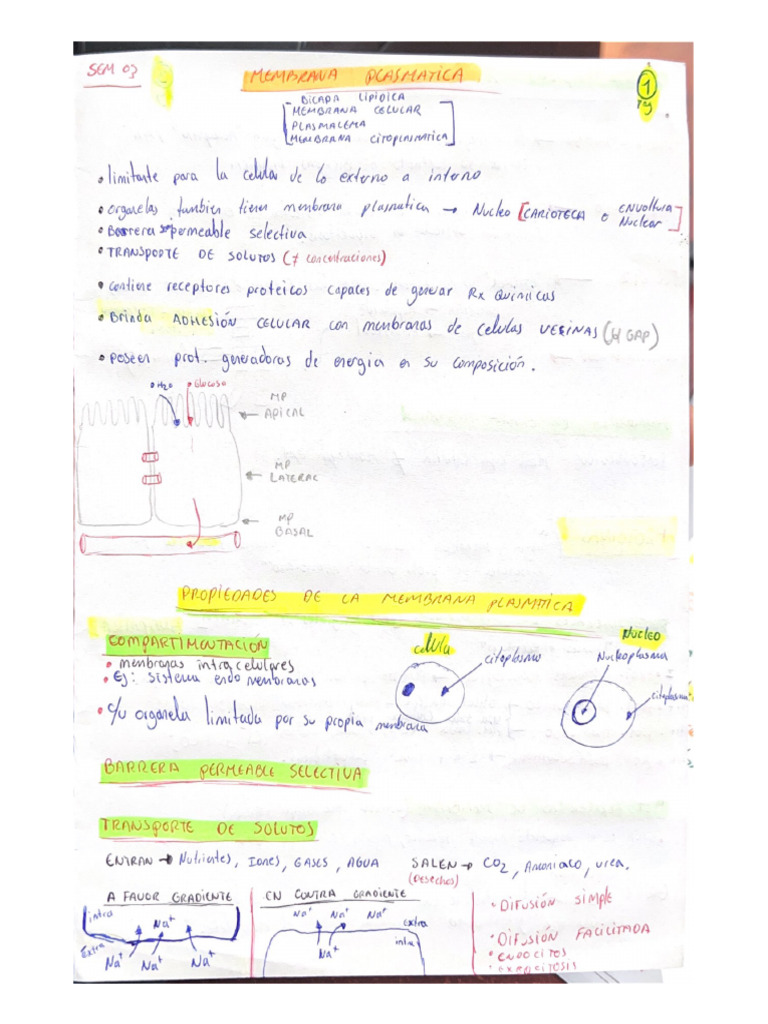 SEM 03
MEMBRANA PLASMATICA
1
Pg
BICAPA LIPIDICA
MEMBRANA CELULAR
PLASMALEMA
MEMBRANA CITOPLASMATICA
• limitante para la celula de lo externo a interno
• organelas tambien tienen membrana plasmatica → Nucleo [CARIOTECA o ENVOLTURA Nuclear]
• Barrera permeable selectiva
• TRANSPORTE DE SOLUTOS (≠ concentraciones)
• contiene receptores proteicos capaces de generar Rx Quimicas
• Brinda ADHESIÓN CELULAR con membranas de celulas VECINAS (GAP)
• poseen prot. generadoras de energia en su composición.
• H2O • Glucosa
MP
APICAL
MP
LATERAL
MP
BASAL
PROPIEDADES DE LA MEMBRANA PLASMATICA
COMPARTIMENTACIÓN
• membranas intracelulares
• Ej: sistema endo membranas
• c/u organela limitada por su propia membrana
celula
citoplasma
NUCLEO
Nucleoplasma
citoplasma
BARRERA PERMEABLE SELECTIVA
TRANSPORTE DE SOLUTOS
ENTRAN → Nutrientes, Iones, GASES, AGUA
SALEN → CO2, Amoniaco, urea.
(DESECHOS)
A FAVOR GRADIENTE
intra
Na+
Extra
Na+ Na+ Na+
EN CONTRA GRADIENTE
Na+ Na+ Na+
extra
intra
Na+
• DIFUSIÓN SIMPLE
• DIFUSIÓN FACILITADA
• ENDOCITOS
• EXOCITOSIS